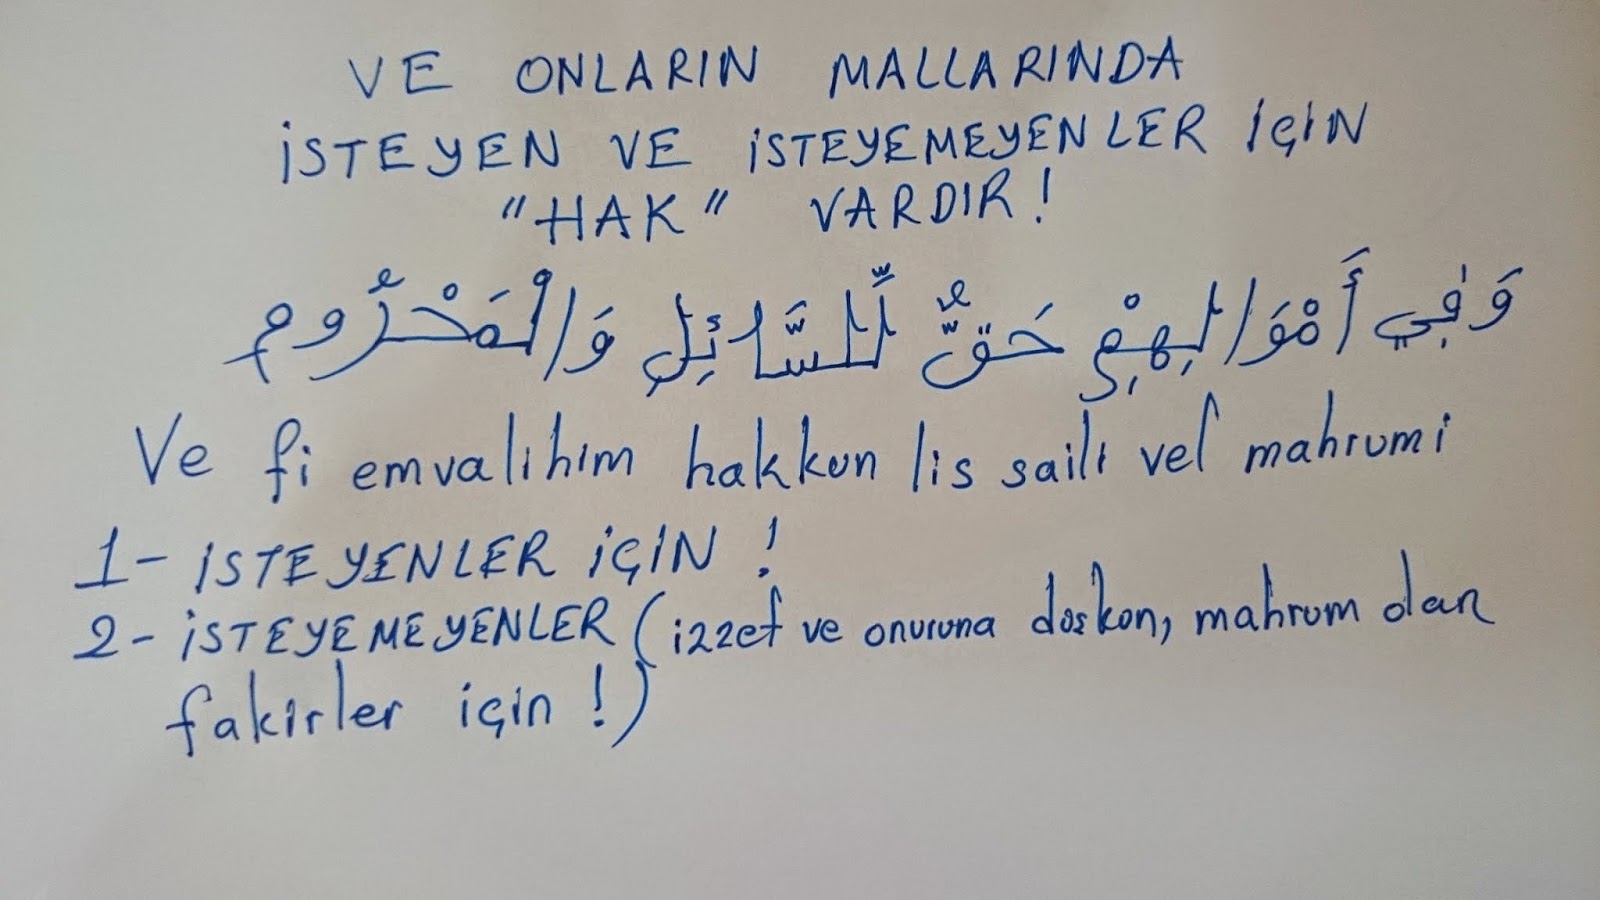 VE ONLARIN MALLARINDA
İSTEYEN VE İSTEYEMEYENLER İÇİN
"HAK" VARDIR!
وَفٖي أَمْوَالِهِمْ حَقٌّ لِّلسَّائِلِ وَالْمَحْرُومِ
Ve fi emvalihim hakkun lis saili vel mahrumi
1- İSTEYENLER İÇİN !
2- İSTEYEMEYENLER (izzet ve onuruna düşkün, mahrum olan
fakirler için !)